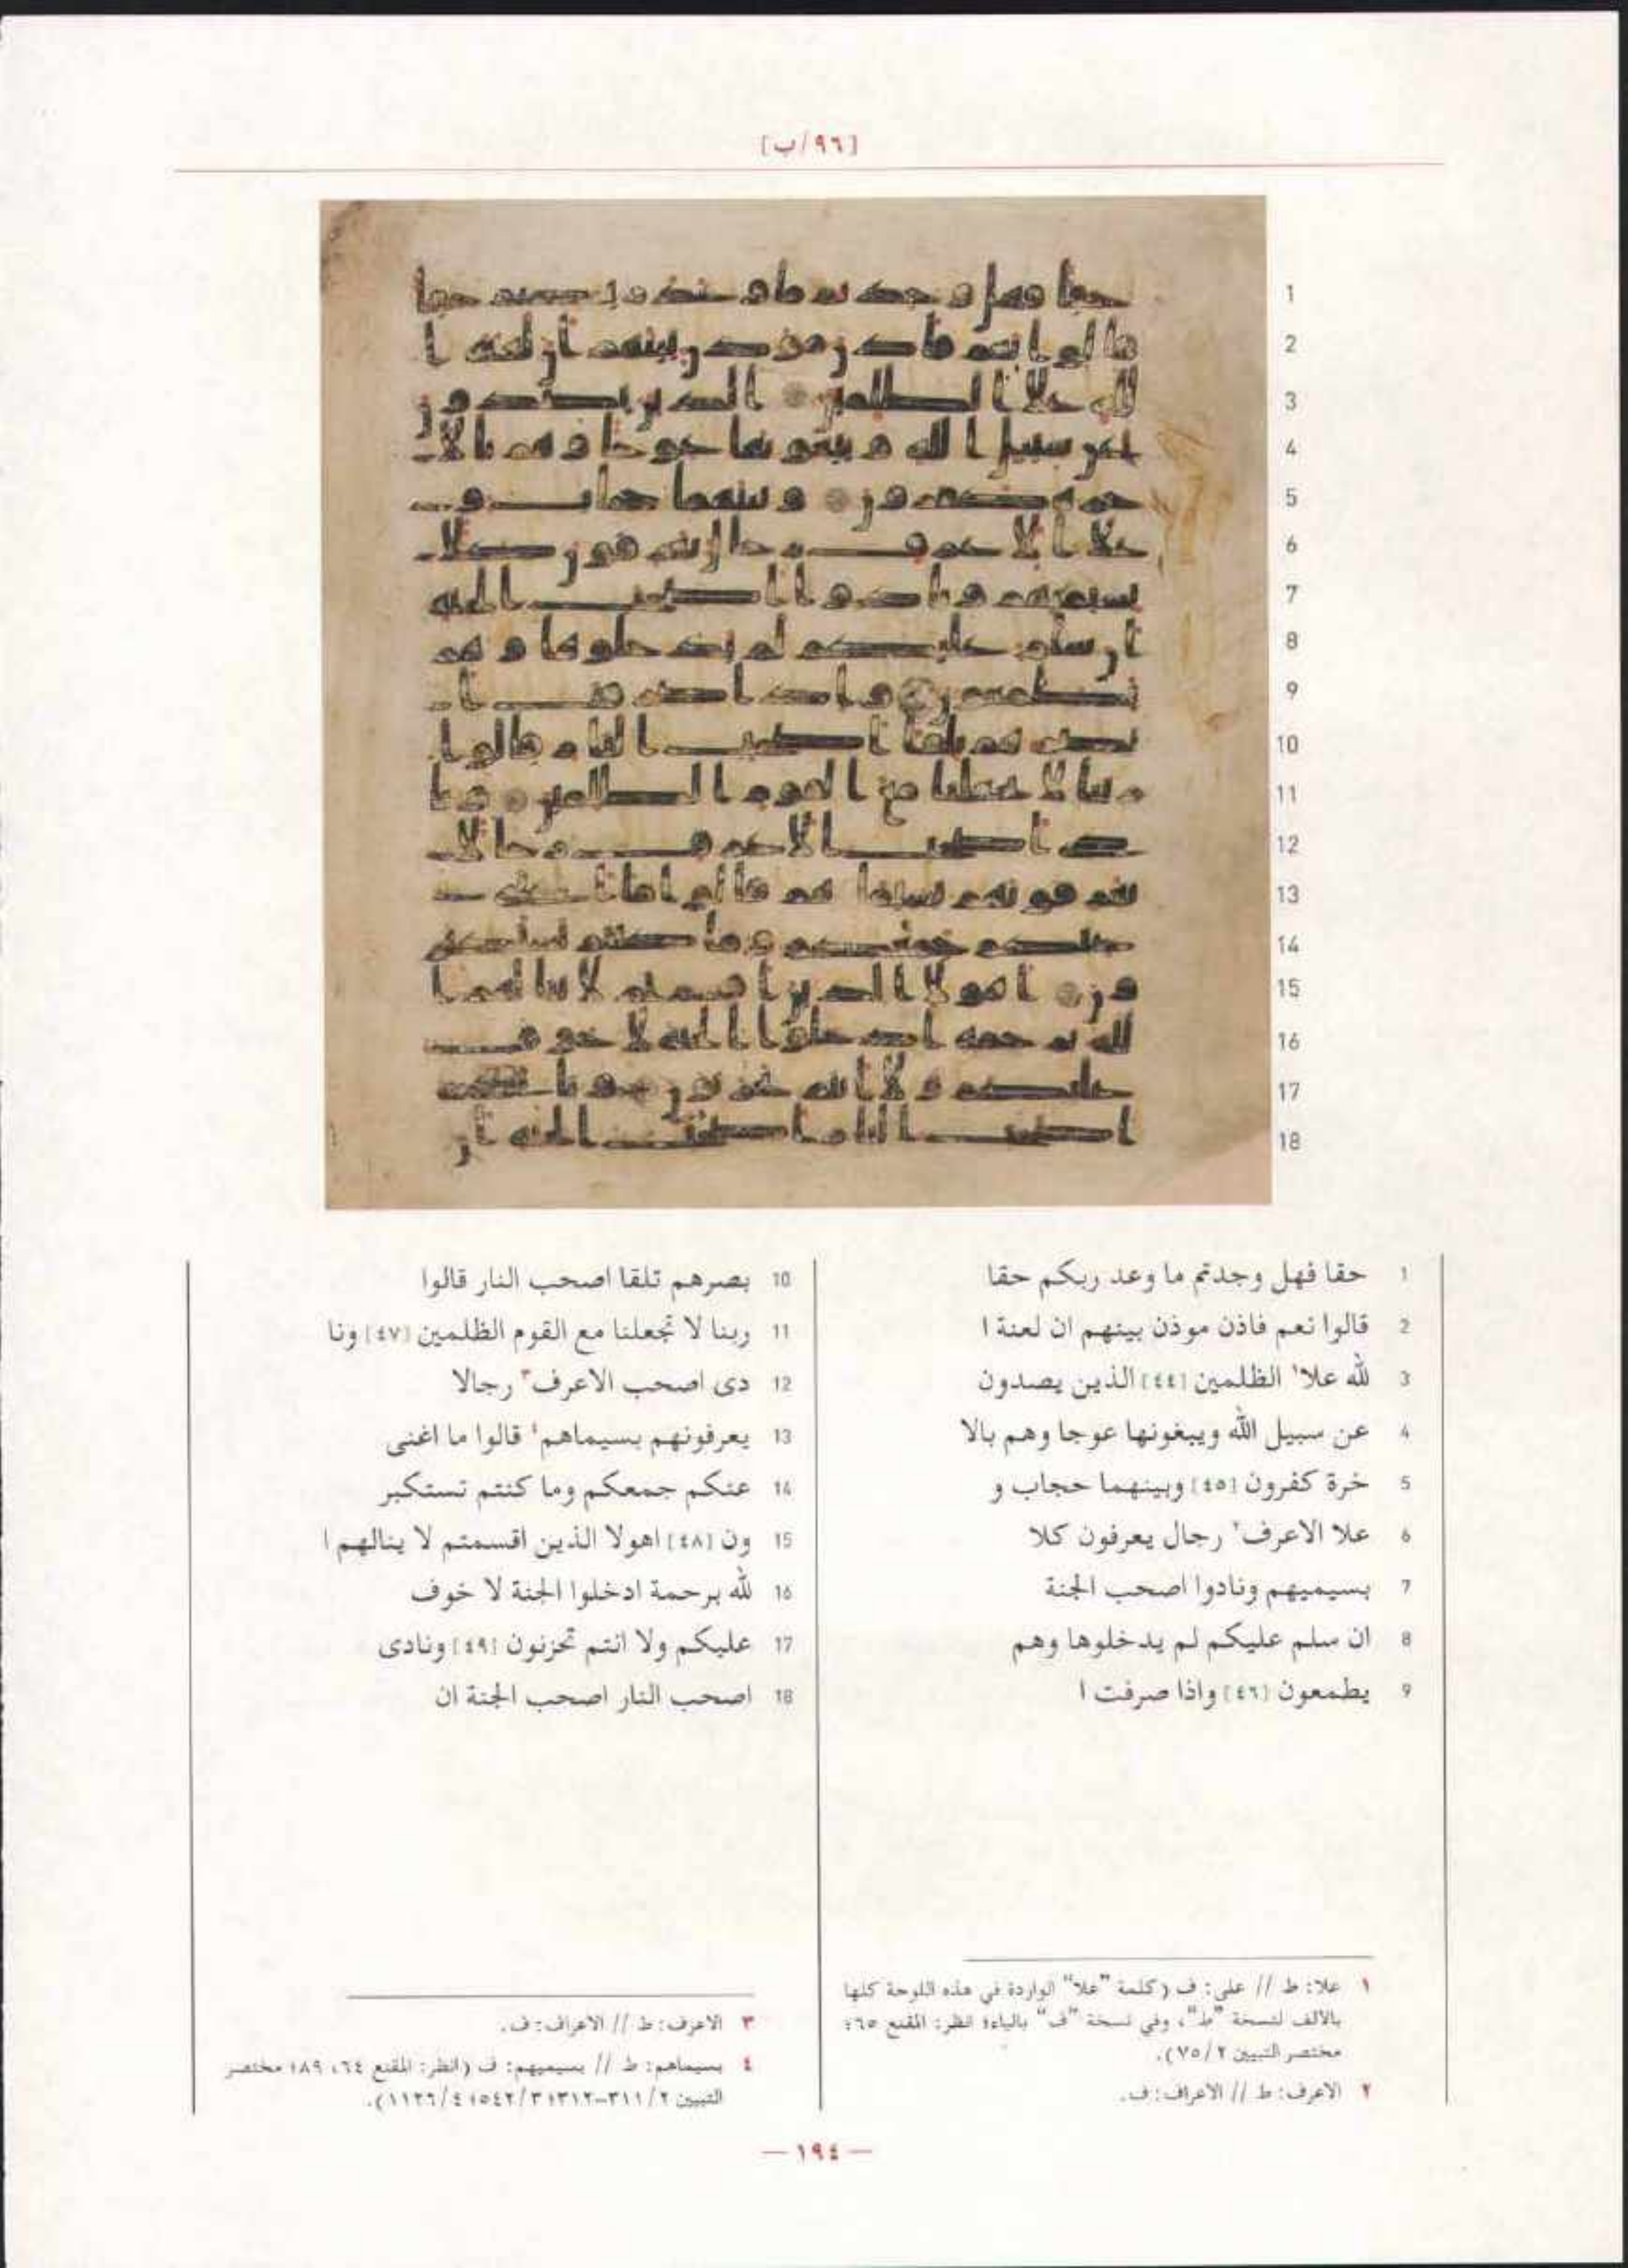 [٩٦/ب]
1 حقا فهل وجدتم ما وعد ربكم حقا
2 قالوا نعم فاذن موذن بينهم ان لعنة ا
3 لله علا١ الظلمين [٤٤] الذين يصدون
4 عن سبيل الله ويبغونها عوجا وهم بالا
5 خرة كفرون [٤٥] وبينهما حجاب و
6 علا الاعرف٢ رجال يعرفون كلا
7 بسيميهم ونادوا اصحب الجنة
8 ان سلم عليكم لم يدخلوها وهم
9 يطمعون [٤٦] واذا صرفت ا
10 بصرهم تلقا اصحب النار قالوا
11 ربنا لا تجعلنا مع القوم الظلمين [٤٧] ونا
12 دى اصحب الاعرف٣ رجالا
13 يعرفونهم بسيماهم٤ قالوا ما اغنى
14 عنكم جمعكم وما كنتم تستكبر
15 ون [٤٨] اهولا الذين اقسمتم لا ينالهم ا
16 لله برحمة ادخلوا الجنة لا خوف
17 عليكم ولا انتم تحزنون [٤٩] ونادى
18 اصحب النار اصحب الجنة ان
١ علا: ط // على: ف (كلمة "علا" الواردة في هذه اللوحة كلها
بالالف لنسخة "ط"، وفي نسخة "ف" بالياء؛ انظر: المقنع ٦٥؛
مختصر التبيين ٧٥/٢).
٢ الاعرف: ط // الاعراف: ف.
٣ الاعرف: ط // الاعراف: ف.
٤ بسيماهم: ط // بسيميهم: ف (انظر: المقنع ٦٤، ٨٩؛ مختصر
التبيين ٣١١/٢-٣١٢؛ ٥٤٢/٣؛ ١١٢٦/٤).
— ١٩٤ —